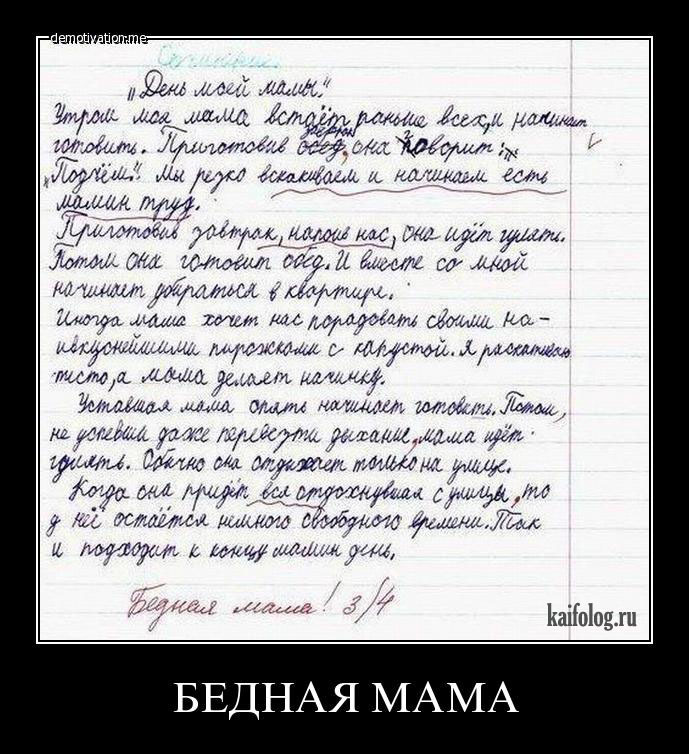 demotivation.me
Сочинение
„День моей мамы."
Утром моя мама встаёт раньше всех, и начинает
готовить. Приготовив завтрак обед, она говорит:
„Подъём". Мы резко вскакиваем и начинаем есть
мамин труд.
Приготовив завтрак, напоив нас, она идёт гулять.
Потом она готовит обед. И вместе со мной
начинает убираться в квартире.
Иногда мама хочет нас порадовать своими на-
ивкуснейшими пирожками с капустой. Я раскатываю
тесто, а мама делает начинку.
Уставшая мама опять начинает готовить. Потом,
не успевши даже перевезти дыхание, мама идёт
гулять. Обычно она отдыхает только на улице.
Когда она придёт вся отдохнувшая с улицы, то
у неё остаётся немного свободного времени. Так
и подходит к концу мамин день.
Бедная мама! 3/4
kaifolog.ru
БЕДНАЯ МАМА